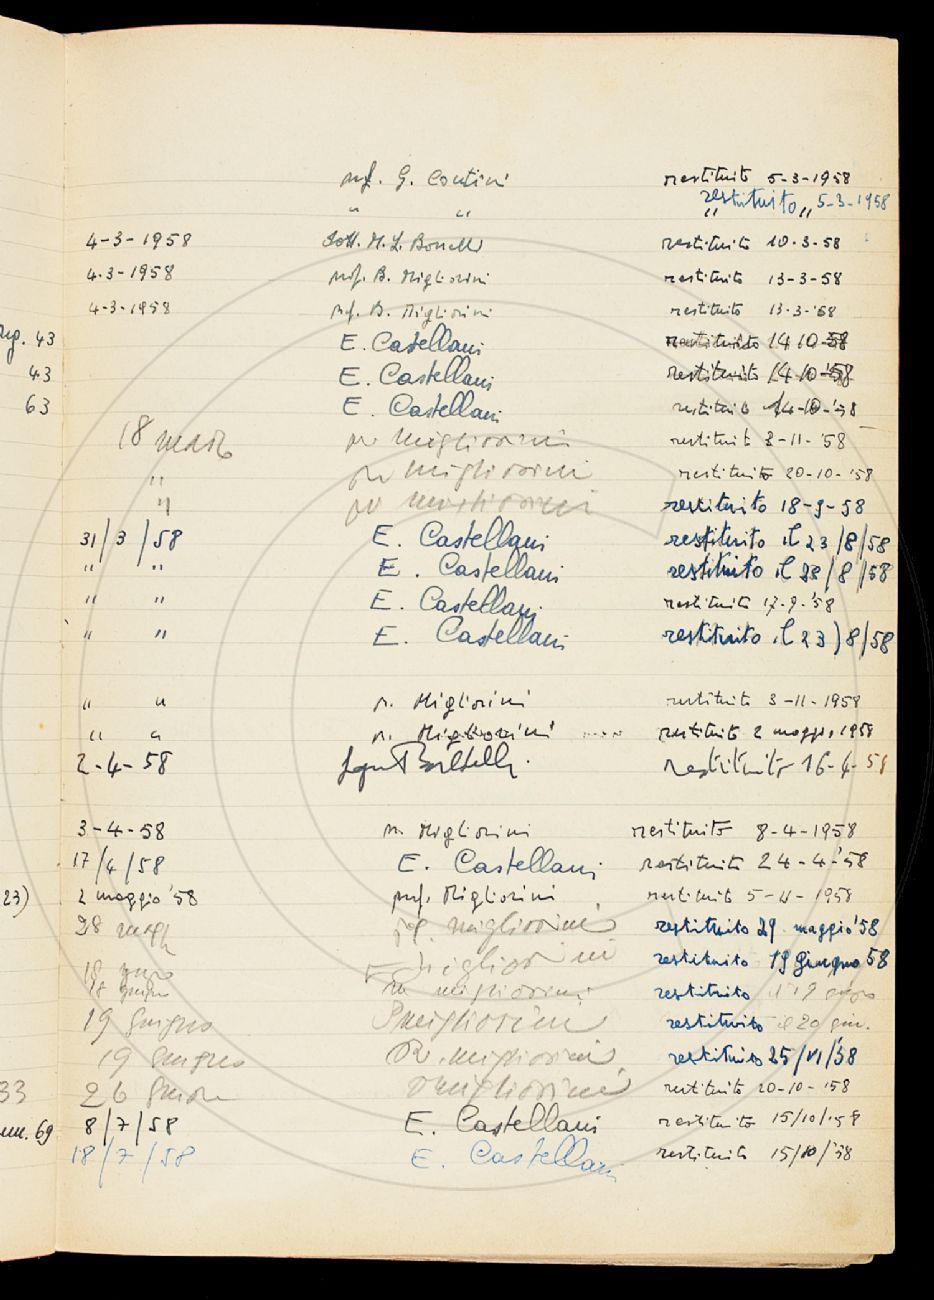 prof. G. Contini restituito 5-3-1958
" " " restituito " 5-3-1958
4-3-1958 Dott. M. L. Bonelli restituito 10-3-58
4-3-1958 prof. B. Migliorini restituito 13-3-58
4-3-1958 prof. B. Migliorini restituito 13-3-'58
43 E. Castellani restituito 14 10-58
43 E. Castellani restituito 14-10-'58
63 E. Castellani restituito 14-10-'58
18 marzo Migliorini restituito 3-11-'58
" Migliorini restituito 20-10-'58
" Migliorini restituito 18-9-58
31/3/58 E. Castellani restituito il 23/8/58
" " E. Castellani restituito il 23/8/58
" " E. Castellani restituito 17-9-'58
" " E. Castellani restituito il 23/8/58
" " Migliorini restituito 3-11-1958
" " Migliorini restituito 2 maggio 1958
2-4-58 restituito 16-4-58
3-4-58 Migliorini restituito 8-4-1958
17/4/58 E. Castellani restituito 24-4-'58
23) 2 maggio '58 prof. Migliorini restituito 5-11-1958
28 Migliorini restituito 29 maggio '58
Migliorini restituito 19 giugno 58
18 giugno Migliorini restituito
19 giugno Migliorini restituito il 20 giu.
19 giugno Migliorini restituito 25/VI/58
33 26 Migliorini restituito 20-10-'58
69 8/7/58 E. Castellani restituito 15/10/'58
18/7/58 E. Castellani restituito 15/10/'58